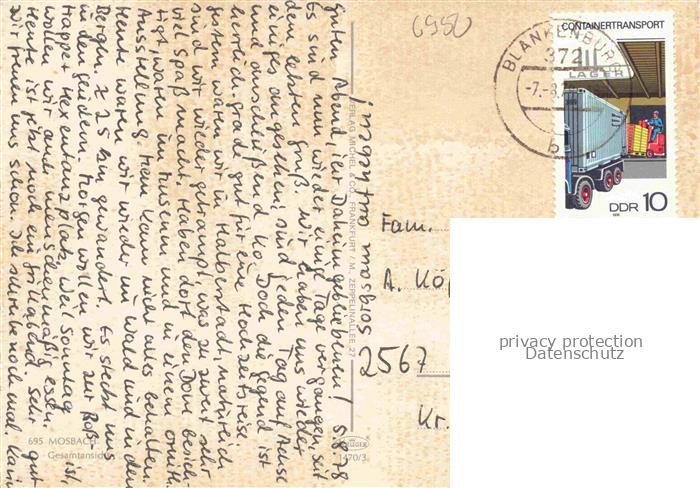 6950
CONTAINERTRANSPORT
BLANKENBURG
3721
LAGER
-7.-8.
b
DDR 10
Guten Abend, ihr Daheimgebliebenen! 5.8.78
Es sind nun wieder einige Tage vergangen seit
dem letzten Gruß. Wir haben uns wieder
einiges angesehen, sind jeden Tag auf Achse
und anschließend k.o. Doch die Gegend ist
herrlich, grad gut für eine Hochzeitsreise.
Gestern waren wir in Halberstadt, natürlich
sind wir wieder getrampt, was zu zweit sehr
viel Spaß macht. Haben dort den Dom besich-
tigt, waren im Museum und in einem ornith.
Ausstellung. Man kann nicht alles behalten.
Heute waren wir wieder im Wald und in den
Bergen, ± 25 km gewandert. Es steckt uns
in den Gliedern. Morgen wollen wir zur Roß-
trappe, Hexentanzplatz, weil Sonntag ist,
wollen wir auch menschenmäßig essen.
Heute ist jetzt noch ein Grillabend. Sehr gut
wir freuen uns schon sehr. schreibe noch mal. Karin
VERLAG MICHEL & CO., FRANKFURT / M., ZEPPELINALLEE 27
KRÜGER
1470/3
695 MOSBACH
Gesamtansicht
Fam.
A. Kö
2567
Kr.
privacy protection
Datenschutz